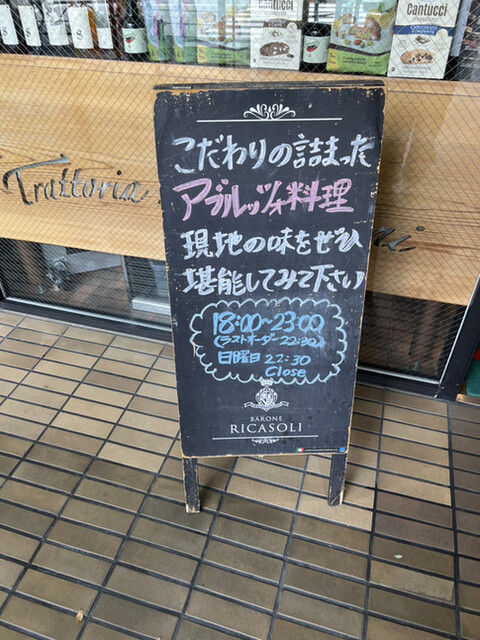 Cantucci
Cantucci
Trattoria
こだわりの詰まった
アブルッツォ料理
現地の味をぜひ
堪能してみて下さい
18:00~23:00
(ラストオーダー22:30)
日曜日 22:30
Close
BARONE
RICASOLI